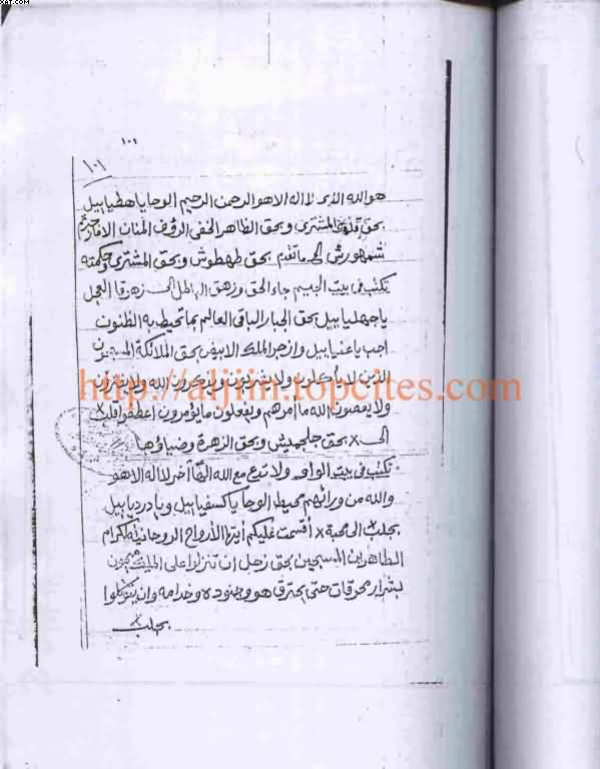 xat.com
١٠١
١٠١
هو الله الذي لا اله الا هو الرحمن الرحيم الوحا يا هطيابيل
بحق المشتري وبحق الظاهر الخفي الرؤف المنان الا ما
شمهورش الى ما تقدم بحق طهطوش وبحق المشتري وحكمته
تكتب في بيت الجيم جاء الحق وزهق الباطل الى زهوقا العجل
يا جهلبابيل بحق الجبار الباقي العالم بما تحيط به الظنون
اجب يا عنيابيل وازجر الملك الابيض بحق الملائكة المسبحون
الذين لا ياكلون ولا يشربون ويذكرون الله ولا يفترون
ولا يعصون الله ما امرهم ويفعلون ما يؤمرون اعطف قلب x
الى x بحق جلجميش وبحق الزهرة وضياؤها
http://aljiin.topcites.com
تكتب في بيت الواو ولا تدع مع الله الها اخر لا اله الا هو
والله من ورائهم محيط الوحا يا كسفيابيل ويا درديابيل
بجلب x الى محبة x أقسمت عليكم أيتها الأرواح الروحانية الكرام
الطاهرين المسبحين بحق زحل ان تنزلوا على الملك ميمون
بشرار محرقات حتى يحترق هو وجنوده وخدامه وان يتوكلوا
بجلب x